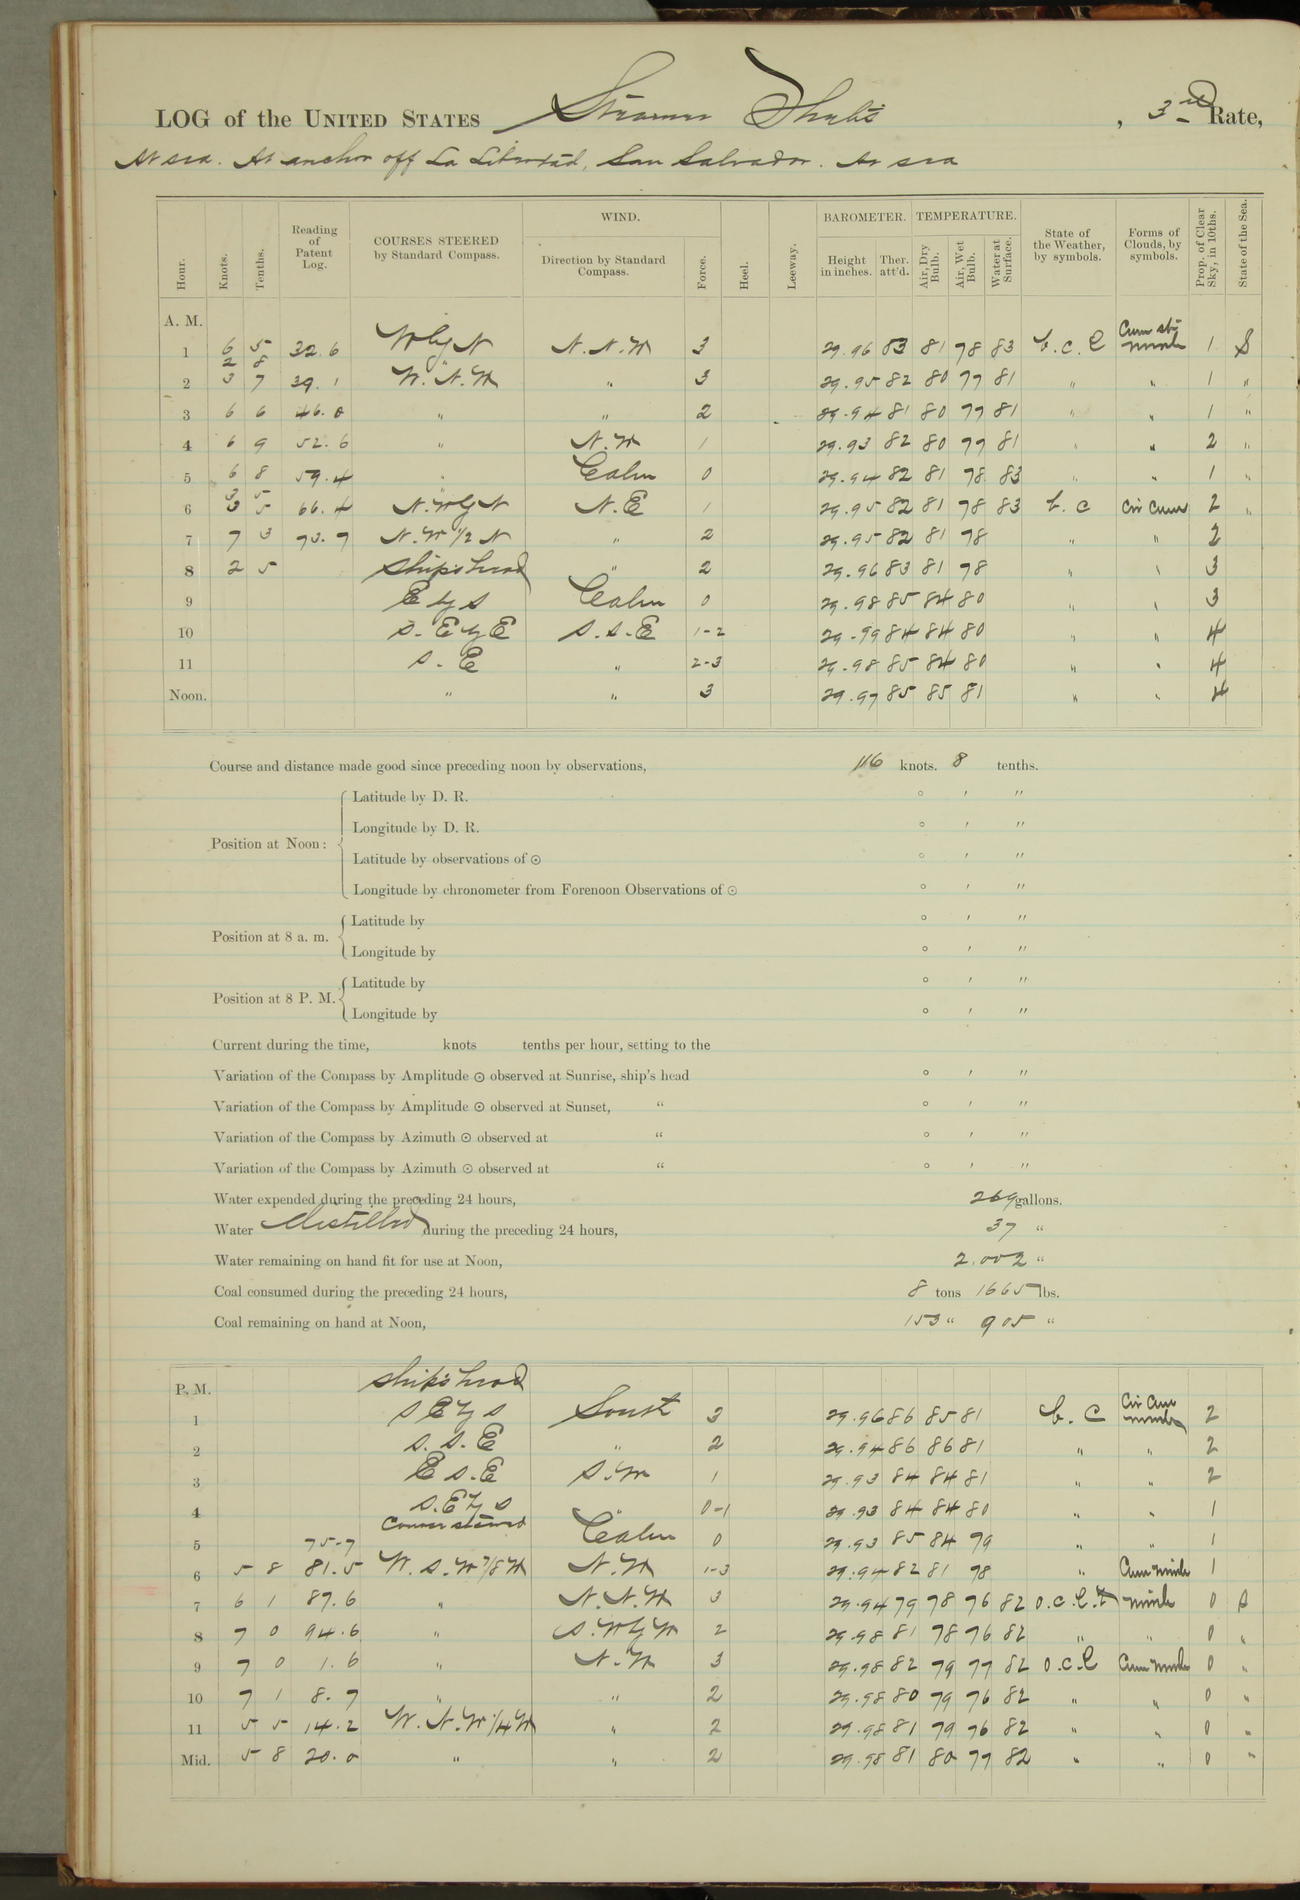 LOG of the UNITED STATES Steamer Thetis, 3rd Rate,
At sea. At anchor off La Libertad, San Salvador. At sea
Hour. Knots. Tenths. Reading of Patent Log. COURSES STEERED by Standard Compass. WIND. Direction by Standard Compass. Force. Heel. Leeway. BAROMETER. Height in inches. Ther. att'd. TEMPERATURE. Air, Dry Bulb. Air, Wet Bulb. Water at Surface. State of the Weather, by symbols. Forms of Clouds, by symbols. Prop. of Clear Sky, in 10ths. State of the Sea.
A. M.
1 6 5 32.6 W by N N.N.W 3 29.96 83 81 78 83 b.c.l Cum str nimb 1 S
2 2 8 3 7 39.1 W.N.W " 3 29.95 82 80 77 81 " " 1 "
3 6 6 46.0 " " 2 29.94 81 80 77 81 " " 1 "
4 6 9 52.6 " N.W 1 29.93 82 80 77 81 " " 2 "
5 6 8 59.4 " Calm 0 29.94 82 81 78 83 " " 1 "
6 3 5 3 5 66.4 N.W by N N.E 1 29.95 82 81 78 83 b.c Cir Cum 2 "
7 7 3 73.7 N.W 1/2 N " 2 29.95 82 81 78 " " 2
8 2 5 Ship's head " 2 29.96 83 81 78 " " 3
9 E by S Calm 0 29.98 85 84 80 " " 3
10 S.E by E S.S.E 1-2 29.99 84 84 80 " " 4
11 S.E " 2-3 29.98 85 84 80 " " 4
Noon. " " 3 29.97 85 85 81 " " 4
Course and distance made good since preceding noon by observations, 116 knots. 8 tenths.
Position at Noon: Latitude by D. R. ° ′ ″
Longitude by D. R. ° ′ ″
Latitude by observations of ☉ ° ′ ″
Longitude by chronometer from Forenoon Observations of ☉ ° ′ ″
Position at 8 a. m. Latitude by ° ′ ″
Longitude by ° ′ ″
Position at 8 P. M. Latitude by ° ′ ″
Longitude by ° ′ ″
Current during the time, knots tenths per hour, setting to the
Variation of the Compass by Amplitude ☉ observed at Sunrise, ship's head ° ′ ″
Variation of the Compass by Amplitude ☉ observed at Sunset, " ° ′ ″
Variation of the Compass by Azimuth ☉ observed at " ° ′ ″
Variation of the Compass by Azimuth ☉ observed at " ° ′ ″
Water expended during the preceding 24 hours, 269 gallons.
Water distilled during the preceding 24 hours, 37 "
Water remaining on hand fit for use at Noon, 2.002 "
Coal consumed during the preceding 24 hours, 8 tons 1665 lbs.
Coal remaining on hand at Noon, 153 " 905 "
P. M. Ship's head
1 S E by S South 3 29.96 86 85 81 b.c Cir Cum nimb 2
2 S.S.E " 2 29.94 86 86 81 " " 2
3 E S.E S.W 1 29.93 84 84 81 " " 2
4 S.E by S " 0-1 29.93 84 84 80 " " 1
Course steered
5 75.7 Calm 0 29.93 85 84 79 " " 1
6 5 8 81.5 W.S.W 7/8 W N.W 1-3 29.94 82 81 78 " Cum nimb 1
7 6 1 87.6 " N.N.W 3 29.94 79 78 76 82 o.c.l.t nimb 0 S
8 7 0 94.6 " S.W by W 2 29.98 81 78 76 82 " " 0 "
9 7 0 1.6 " N.W 3 29.98 82 79 77 82 o.c.l Cum nimb 0 "
10 7 1 8.7 " " 2 29.98 80 79 76 82 " " 0 "
11 5 5 14.2 W.N.W 1/4 W " 2 29.98 81 79 76 82 " " 0 "
Mid. 5 8 20.0 " " 2 29.98 81 80 77 82 " " 0 "